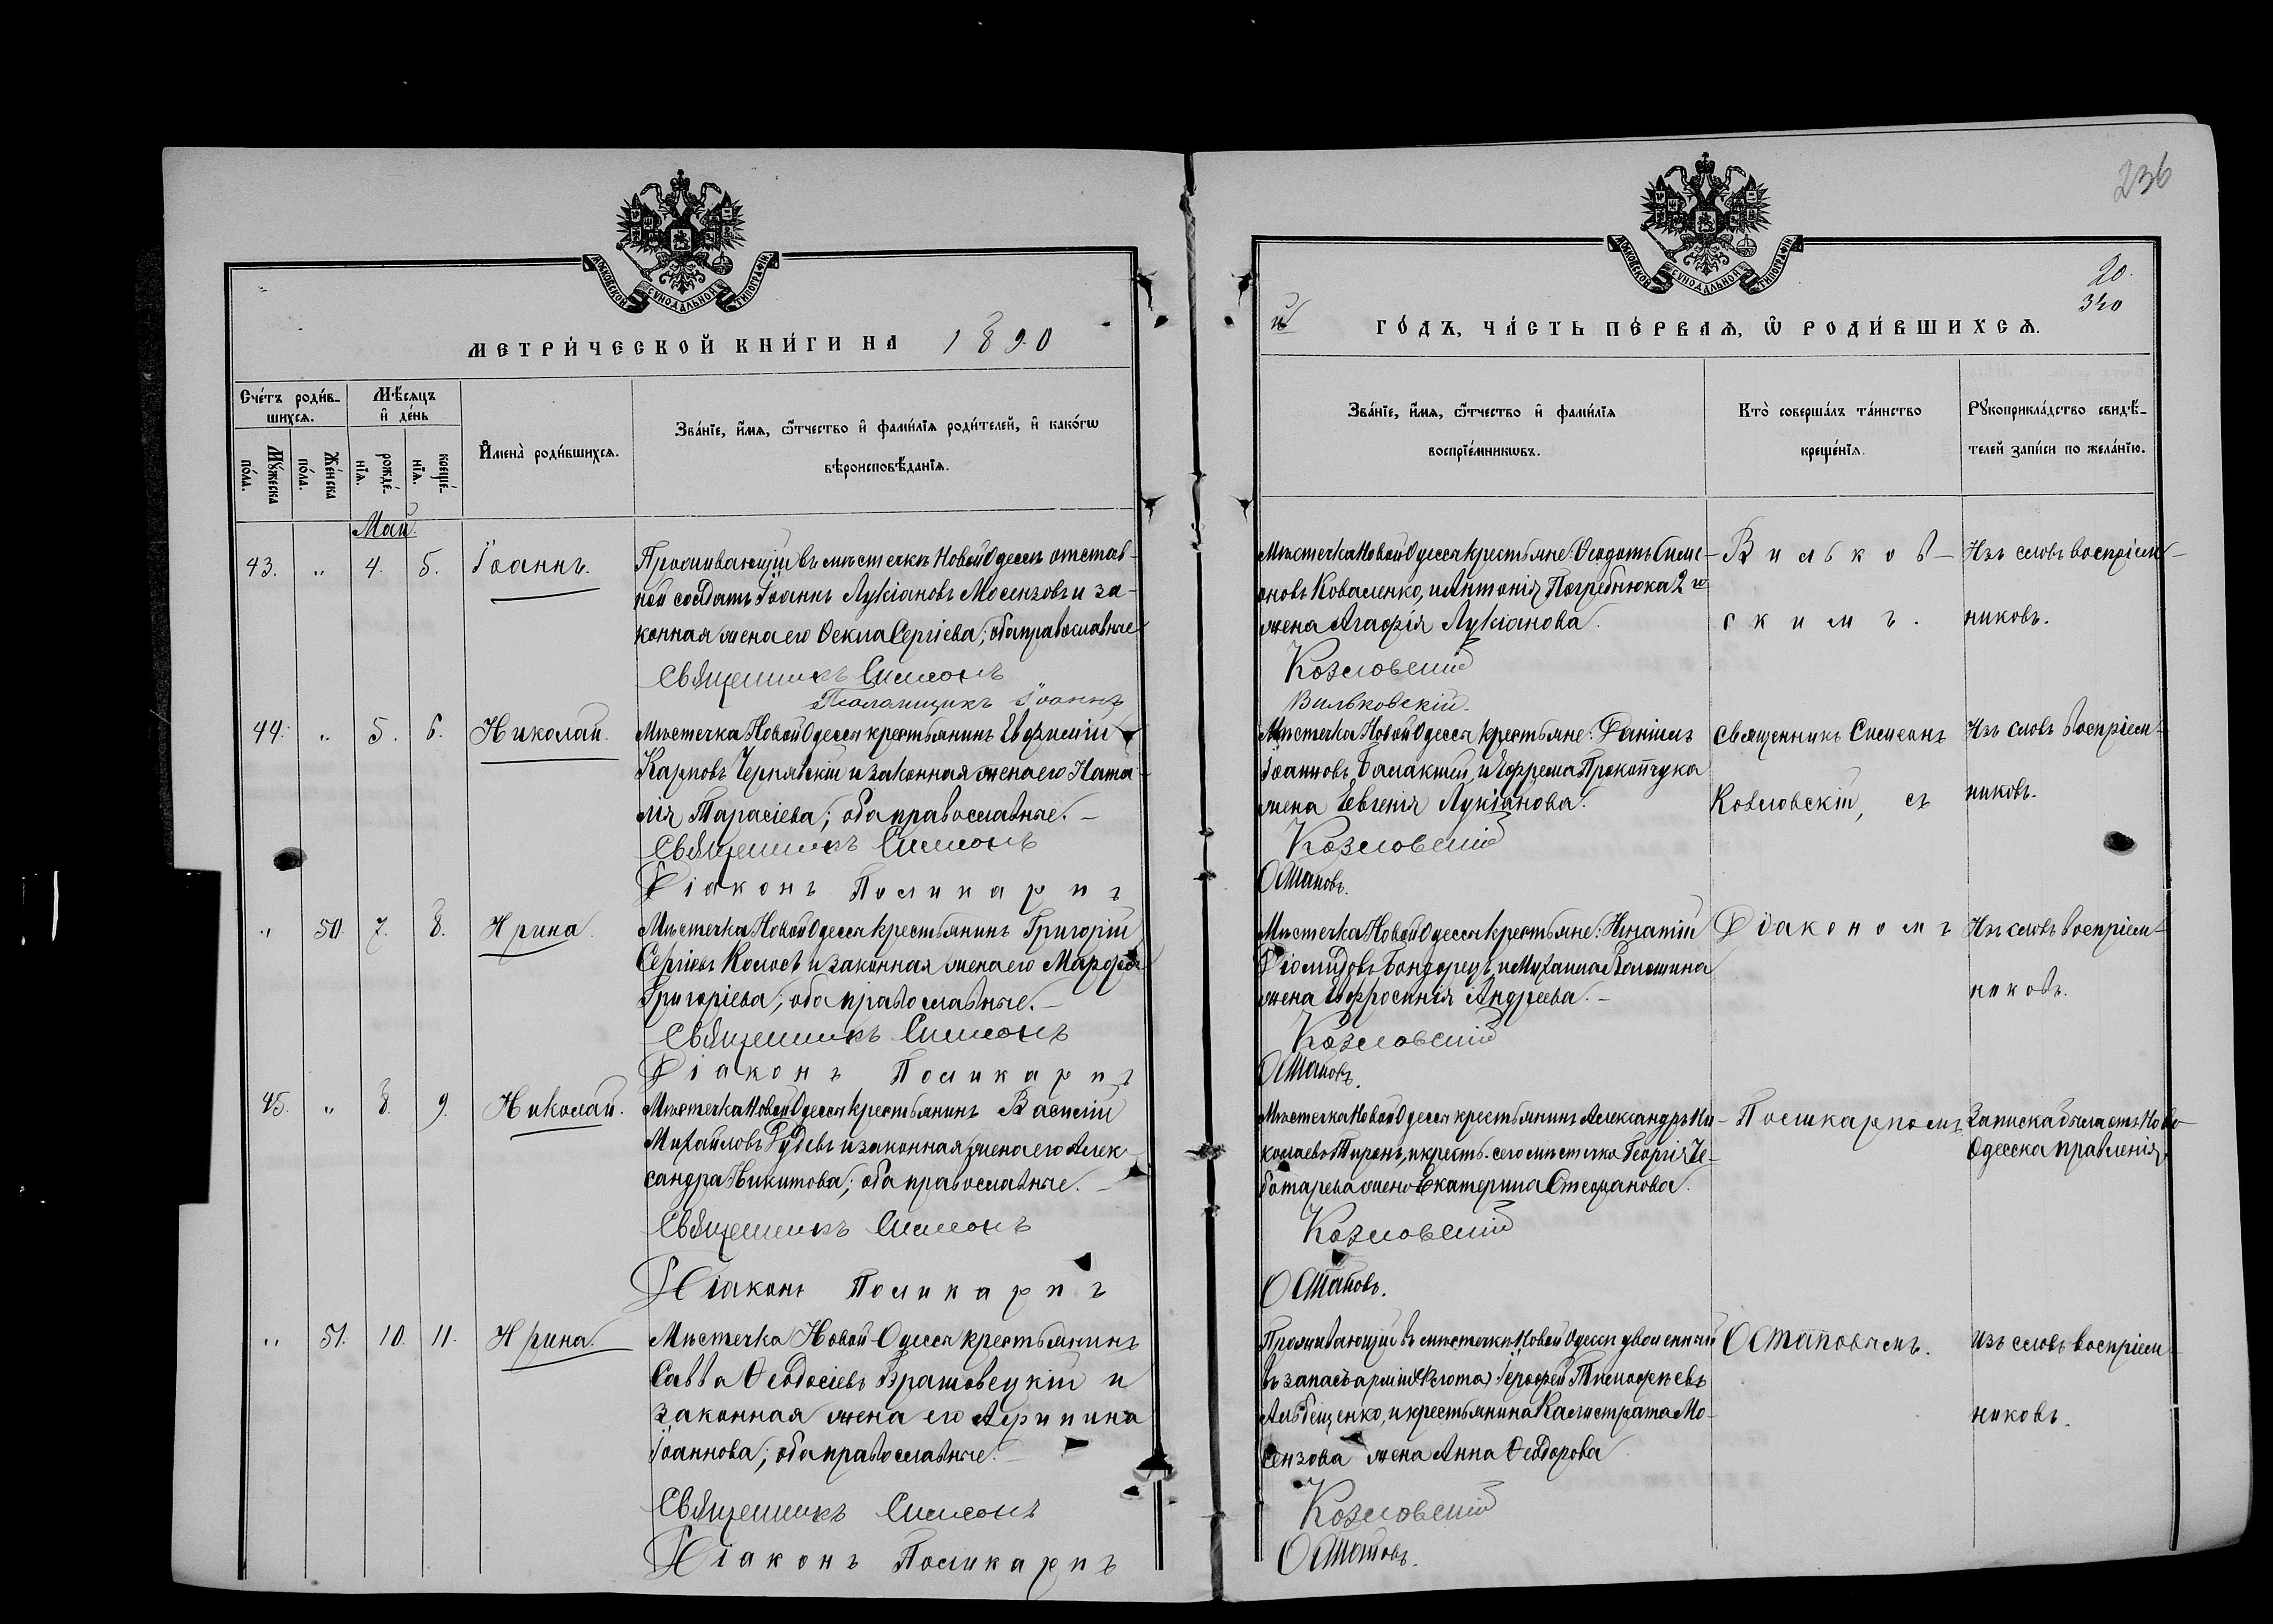 236
МОСКОВСКОЙ СѴНОДАЛЬНОЙ ТИПОГРАФІИ.
МЕТРИ́ЧЕСКОЙ КНИ́ГИ НА 1890
Сче́тъ роди́в-
шихсѧ.
Мѣ́сѧцъ
и҆ де́нь
Мꙋ́жеска
по́ла.
Же́нска
по́ла.
рожде́-
нїѧ.
креще́-
нїѧ.
И҆мена̀ роди́вшихсѧ.
Зва́нїе, и҆́мѧ, ѻ҆́тчество и҆ фами́лїѧ роди́телей, и҆ како́гѡ
вѣроисповѣ́данїѧ.
Май.
43. " 4. 5. Іоаннъ.
Проживающій въ мѣстечкѣ Новой Одессѣ отстав-
ной солдатъ Іоаннъ Лукіановъ Мосензовъ и за-
конная жена его Ѳекла Сергіева; оба православные
Священникъ Симеонъ
Псаломщикъ Іоаннъ
44. " 5. 6. Николай.
Мѣстечка Новой Одессы крестьянинъ Евфимій
Карповъ Чернявскій и законная жена его Ната-
лія Тарасіева; оба православные.
Священникъ Симеонъ
Діаконъ Поликарпъ
" 50. 7. 8. Ирина.
Мѣстечка Новой Одессы крестьянинъ Григорій
Сергіевъ Колосъ и законная жена его Марфа
Григоріева; оба православные.
Священникъ Симеонъ
Діаконъ Поликарпъ
45. " 8. 9. Николай.
Мѣстечка Новой Одессы крестьянинъ Василій
Михайловъ Гудевъ и законная жена его Алек-
сандра Никитова; оба православные.
Священникъ Симеонъ
Діаконъ Поликарпъ
" 51. 10. 11. Ирина.
Мѣстечка Новой-Одессы крестьянинъ
Савва Ѳеодосіевъ Врашовецкій и
законная жена его Агрипина
Іоаннова; оба православные.
Священникъ Симеонъ
Діаконъ Поликарпъ
МОСКОВСКОЙ СѴНОДАЛЬНОЙ ТИПОГРАФІИ.
20.
340
й ГО́ДЪ, ЧА́СТЬ ПЕ́РВАѦ, Ѡ҆ РОДИ́ВШИХСѦ.
Зва́нїе, и҆́мѧ, ѻ҆́тчество и҆ фами́лїѧ
воспрїе́мникѡвъ.
Кто̀ соверша́лъ та́инство
креще́нїѧ.
Рꙋкоприкла́дство свидѣ́-
телей за́писи по жела́нїю.
Мѣстечка Новой Одессы крестьяне: Ѳеодотъ Симе-
оновъ Коваленко, и Антонія Погребнюка 2-го
жена Агафія Лукіанова.
Козловскій
Вильковскій.
Вильков-
скимъ.
Изъ словъ воспріем-
никовъ.
Мѣстечка Новой Одессы крестьяне: Даніилъ
Іоанновъ Балакшей, и Ефрема Прокопчука
жена Евгенія Лукіанова.
Козловскій
Остаповъ.
Священникъ Симеонъ
Козловскій, съ
Изъ словъ воспріем-
никовъ.
Мѣстечка Новой Одессы крестьяне: Игнатій
Діомидовъ Бондорецъ, и Михаила Волошина
жена Евфросинія Андреева.
Козловскій
Остаповъ.
Діакономъ
Изъ словъ воспріем-
никовъ.
Мѣстечка Новой Одессы крестьянинъ Александръ Ни-
колаевъ Тиронъ, и крестъ. сего мѣстечка Георгія Че-
ботарева жена Екатерина Стефанова.
Козловскій
Остаповъ.
Поликарпомъ
Записка была отъ Ново-
Одесска правленія
Проживающій въ мѣстечкѣ Новой Одессѣ уволенный
въ запасъ арміи (флота) Іерофей Тимофѣевъ
и крестьянина Калистрата Мо-
сензова жена Анна Ѳеодорова
Козловскій
Остаповъ.
Остаповымъ.
Изъ словъ воспріем-
никовъ.